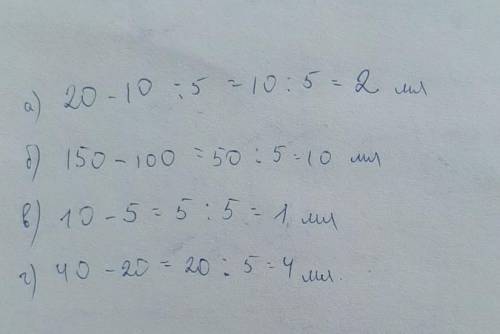 а) 20 - 10 : 5 = 10 : 5 = 2 мл
б) 150 - 100 = 50 : 5 = 10 мл
в) 10 - 5 = 5 : 5 = 1 мл
г) 40 - 20 = 20 : 5 = 4 мл.